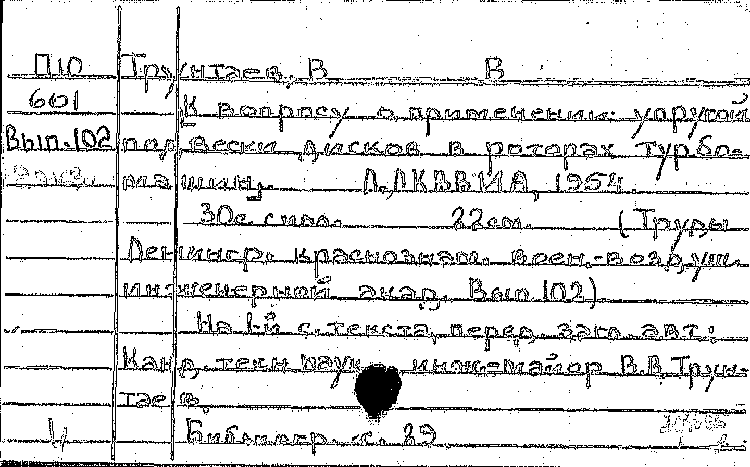 П10 Трунтаев, В В
601 К вопросу о применении упругой
Вып.102 подвески дисков в роторах турбо-
машин. Л., ЛКВВИА, 1954.
30 с. с илл. 22 см. (Труды
Ленингр. краснознам. воен.-воздуш.
инженерной акад. Вып. 102).
На 1-й с. текста перед загл. авт.:
Канд. техн. наук инж-майор В.В. Трун-
таев.
Библиогр. с. 29